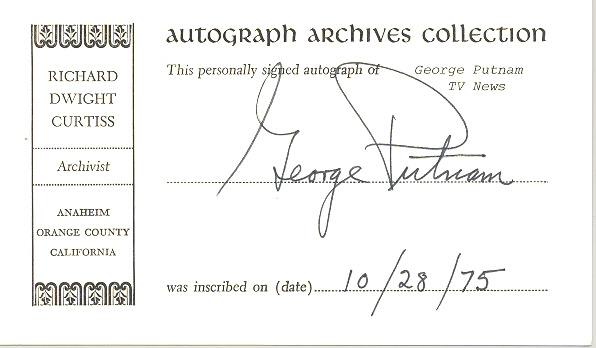 AUTOGRAPH ARCHIVES COLLECTION
RICHARD
DWIGHT
CURTISS
Archivist
ANAHEIM
ORANGE COUNTY
CALIFORNIA
This personally signed autograph of George Putnam
TV News
George Putnam
was inscribed on (date) 10/28/75